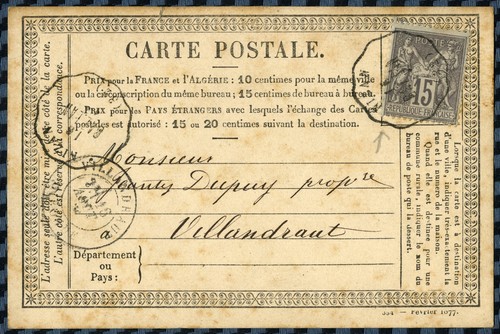 CARTE POSTALE.
PRIX pour la FRANCE et l'ALGÉRIE : 10 centimes pour la même ville
ou la circonscription du même bureau; 15 centimes de bureau à bureau.
PRIX pour les PAYS ÉTRANGERS avec lesquels l'échange des Cartes
postales est autorisé : 15 ou 20 centimes suivant la destination.
15
REPUBLIQUE FRANCAISE
L'adresse seule doit être mise de ce côté de la carte.
L'autre côté est réservé à la correspondance.
Monsieur
Dupuy propre
Villandraut
VILLANDRAUT
Département
ou
Pays :
Lorsque la carte est à destination
d'une ville, indiquer très-exactement la
rue et le numéro de la maison.
Quand elle est destinée pour une
commune rurale, indiquer le nom du
bureau de poste qui la dessert.
Février 1877.